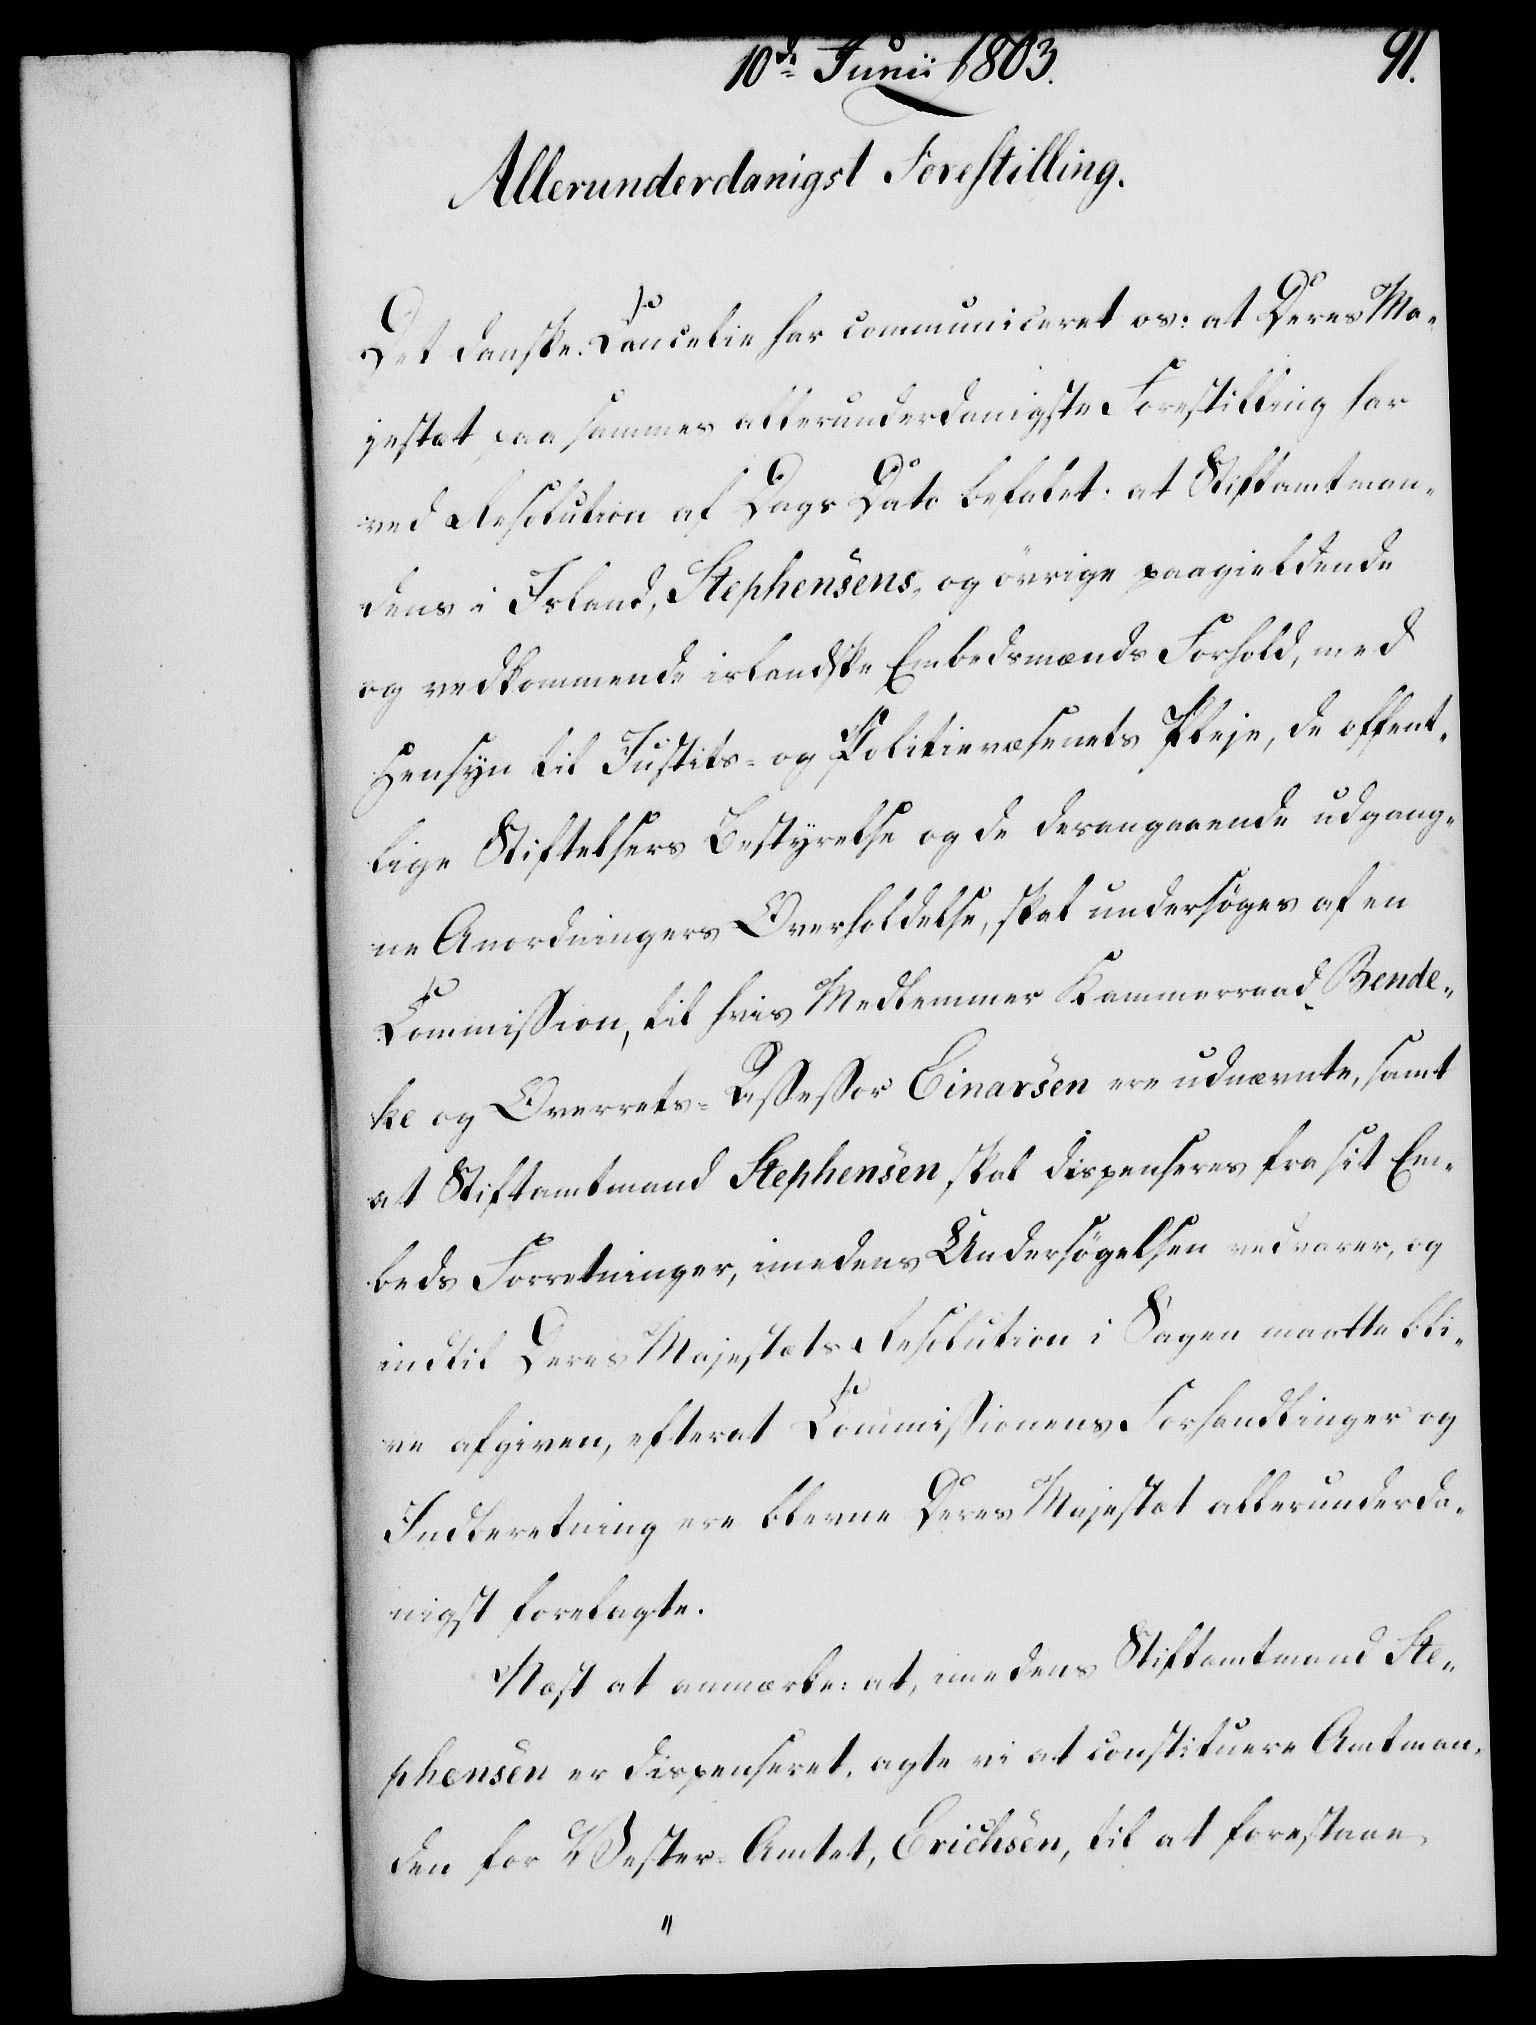 10de Junii 1803.
91.
Allerunderdanigst Forestilling.
Det danske Cancelie har communiceret os: at Deres Ma„
jestæt paa sammes allerunderdanigste Forestilling har
ved Resolution af Dags Dato befalet: at Stiftamtman„
dens i Island, Stephensens, og övrige paagieldende
og vedkommende islandske Embedsmænds Forhold, med
Hensyn til Justits- og Politievæsenets Pleje, de offent„
lige Stiftelsers Bestyrelse og de derangaaende udgang„
ne Anordningers Overholdelse, skal undersöges af en
Commission, til hvis Medlemmer Kammerraad Bende„
ke og Overrets-Assessor Einarsen ere udnævnte, samt
at Stiftamtmand Stephensen skal dispenseres fra sit Em„
beds Forretninger, imedens Undersögelsen vedvarer, og
indtil Deres Majestæts Resolution i Sagen maatte bli„
ve afgiven, efterat Commissionens Forhandlinger og
Indberetning ere blevne Deres Majestæt allerunderda„
nigst forelagte.
Næst at anmærke: at, imedens Stiftamtmand Ste„
phensen er dispenseret, agte vi at constituere Amtman„
den for Vester-Amtet, Erichsen, til at forestaae
"